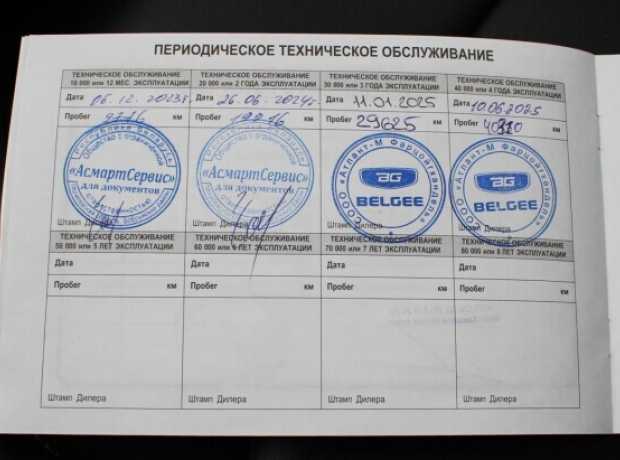 ПЕРИОДИЧЕСКОЕ ТЕХНИЧЕСКОЕ ОБСЛУЖИВАНИЕ
ТЕХНИЧЕСКОЕ ОБСЛУЖИВАНИЕ
10 000 или 12 МЕС. ЭКСПЛУАТАЦИИ
Дата 06.12.2023г.
Пробег км
Общество с ограниченной
«АсмартСервис»
для документов
Штамп Дилера
ТЕХНИЧЕСКОЕ ОБСЛУЖИВАНИЕ
20 000 или 2 ГОДА ЭКСПЛУАТАЦИИ
Дата 26.06.2024г.
Пробег км
«АсмартСервис»
для документов
Штамп Дилера
ТЕХНИЧЕСКОЕ ОБСЛУЖИВАНИЕ
30 000 или 3 ГОДА ЭКСПЛУАТАЦИИ
Дата 11.01.2025
Пробег 29625 км
СООО «Атлант-М Фарцойгхандель»
BG
BELGEE
Штамп Дилера
ТЕХНИЧЕСКОЕ ОБСЛУЖИВАНИЕ
40 000 или 4 ГОДА ЭКСПЛУАТАЦИИ
Дата 10.06.2025
Пробег км
СООО «Атлант-М Фарцойгхандель»
BG
BELGEE
Штамп Дилера
ТЕХНИЧЕСКОЕ ОБСЛУЖИВАНИЕ
50 000 или 5 ЛЕТ ЭКСПЛУАТАЦИИ
Дата
Пробег км
Штамп Дилера
ТЕХНИЧЕСКОЕ ОБСЛУЖИВАНИЕ
60 000 или 6 ЛЕТ ЭКСПЛУАТАЦИИ
Дата
Пробег км
Штамп Дилера
ТЕХНИЧЕСКОЕ ОБСЛУЖИВАНИЕ
70 000 или 7 ЛЕТ ЭКСПЛУАТАЦИИ
Дата
Пробег км
Штамп Дилера
ТЕХНИЧЕСКОЕ ОБСЛУЖИВАНИЕ
80 000 или 8 ЛЕТ ЭКСПЛУАТАЦИИ
Дата
Пробег км
Штамп Дилера